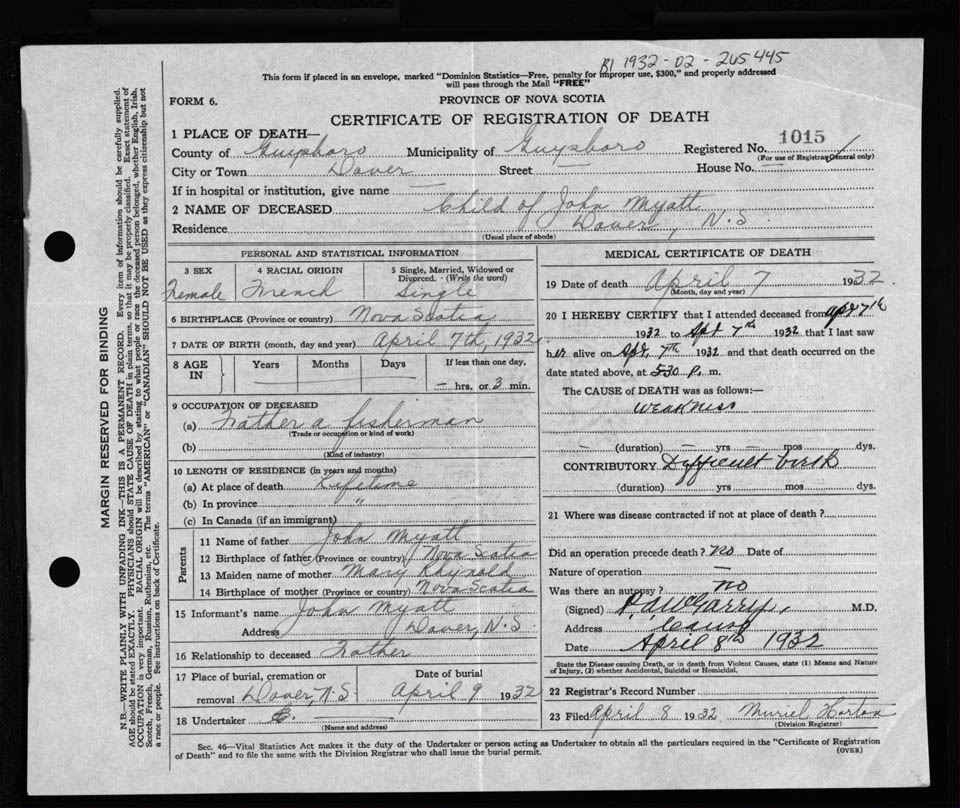 B1 1932-02-265445
This form if placed in an envelope, marked "Dominion Statistics—Free, penalty for improper use, $300," and properly addressed
will pass through the Mail "FREE"
FORM 6.
PROVINCE OF NOVA SCOTIA
CERTIFICATE OF REGISTRATION OF DEATH
1 PLACE OF DEATH—
County of Guysboro Municipality of Guysboro Registered No. 1015
(For use of Registrar General only)
City or Town Dover Street — House No. —
If in hospital or institution, give name —
2 NAME OF DECEASED Child of John Myatt
Residence Dover, N.S
(Usual place of abode)
PERSONAL AND STATISTICAL INFORMATION
3 SEX Female
4 RACIAL ORIGIN French
5 Single, Married, Widowed or Divorced. - (Write the word) Single
6 BIRTHPLACE (Province or country) Nova Scotia
7 DATE OF BIRTH (month, day and year) April 7th, 1932
8 AGE IN Years Months Days If less than one day,
— hrs. or 3 min.
9 OCCUPATION OF DECEASED
(a) Father a fisherman
(Trade or occupation or kind of work)
(b)
(Kind of industry)
10 LENGTH OF RESIDENCE (in years and months)
(a) At place of death Lifetime
(b) In province "
(c) In Canada (if an immigrant)
Parents
11 Name of father John Myatt
12 Birthplace of father (Province or country) Nova Scotia
13 Maiden name of mother Mary Rhynold
14 Birthplace of mother (Province or country) Nova Scotia
15 Informant's name John Myatt
Address Dover, N.S.
16 Relationship to deceased Father
17 Place of burial, cremation or removal Dover, N.S. Date of burial April 9 1932
18 Undertaker
(Name and address)
MEDICAL CERTIFICATE OF DEATH
19 Date of death April 7 1932
(Month, day and year)
20 I HEREBY CERTIFY that I attended deceased from Apr 7th
1932 to Apr 7th 1932 that I last saw
her alive on Apr. 7th 1932 and that death occurred on the
date stated above, at 5.30 P. m.
The CAUSE of DEATH was as follows:—
Weakness
(duration) — yrs — mos — dys.
CONTRIBUTORY Difficult birth
(duration) yrs mos dys.
21 Where was disease contracted if not at place of death?
Did an operation precede death? No Date of
Nature of operation —
Was there an autopsy? no
(Signed) P. A. McGarry, M.D.
Address Canso
Date April 8th 1932
State the Disease causing Death, or in death from Violent Causes, state (1) Means and Nature
of Injury, (2) whether Accidental, Suicidal or Homicidal.
22 Registrar's Record Number
23 Filed April 8 1932 Muriel Horton
(Division Registrar)
Sec. 46—Vital Statistics Act makes it the duty of the Undertaker or person acting as Undertaker to obtain all the particulars required in the "Certificate of Registration
of Death" and to file the same with the Division Registrar who shall issue the burial permit.
(OVER)
MARGIN RESERVED FOR BINDING
N.B.—WRITE PLAINLY WITH UNFADING INK—THIS IS A PERMANENT RECORD. Every item of information should be carefully supplied.
AGE should be stated EXACTLY. PHYSICIANS should STATE CAUSE OF DEATH in plain terms, so that it may be properly classified. Exact statement of
OCCUPATION is very important. RACIAL ORIGIN will be described by stating to what people or race the deceased person belonged, whether English, Irish,
Scotch, French, German, Russian, Ruthenian, etc. The terms "AMERICAN" or "CANADIAN" SHOULD NOT BE USED as they express citizenship but not
a race or people. See instructions on back of Certificate.